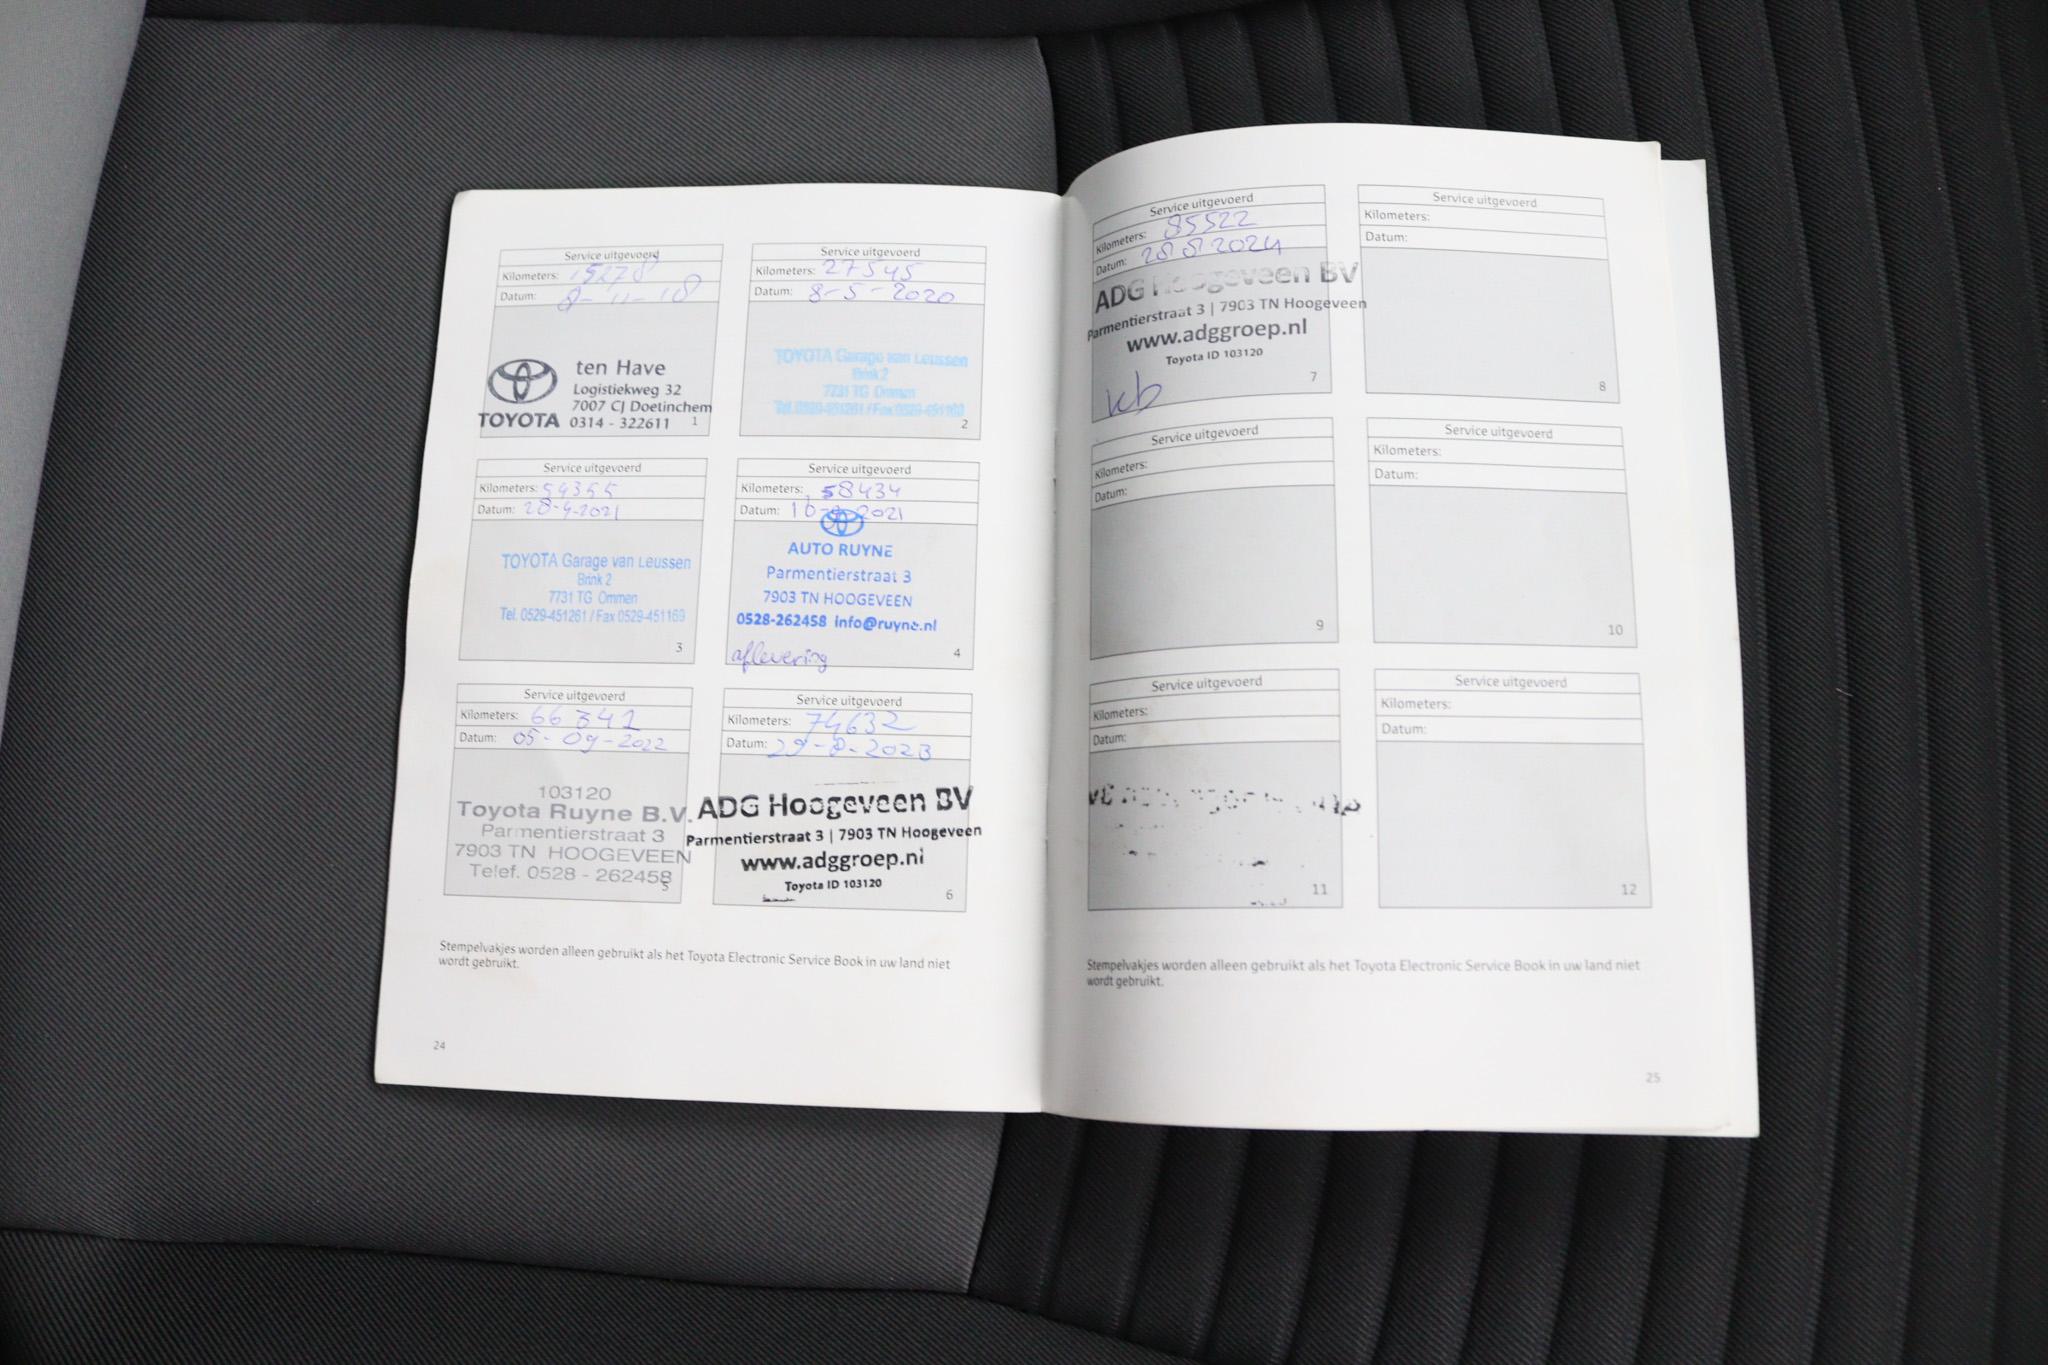 Service uitgevoerd
Kilometers: 15278
Datum: 8-11-18
ten Have
Logistiekweg 32
7007 CJ Doetinchem
TOYOTA 0314 - 322611
1
Service uitgevoerd
Kilometers: 27545
Datum: 8-5-2020
TOYOTA Garage van Leussen
Brink 2
7731 TG Ommen
Tel. 0529-451261 / Fax 0529-451169
2
Service uitgevoerd
Kilometers: 54355
Datum: 28-4-2021
TOYOTA Garage van Leussen
Brink 2
7731 TG Ommen
Tel. 0529-451261 / Fax 0529-451169
3
Service uitgevoerd
Kilometers: 58434
Datum: 2021
AUTO RUYNE
Parmentierstraat 3
7903 TN HOOGEVEEN
0528-262458 info@ruyne.nl
aflevering
4
Service uitgevoerd
Kilometers: 66341
Datum: 05-09-2022
103120
Toyota Ruyne B.V.
Parmentierstraat 3
7903 TN HOOGEVEEN
Telef. 0528 - 262458
5
Service uitgevoerd
Kilometers: 74632
Datum: 29-8-2023
ADG Hoogeveen BV
Parmentierstraat 3 | 7903 TN Hoogeveen
www.adggroep.nl
Toyota ID 103120
6
Stempelvakjes worden alleen gebruikt als het Toyota Electronic Service Book in uw land niet
wordt gebruikt.
24
Service uitgevoerd
Kilometers: 85522
Datum: 28 8 2024
ADG Hoogeveen BV
Parmentierstraat 3 | 7903 TN Hoogeveen
www.adggroep.nl
Toyota ID 103120
7
Service uitgevoerd
Kilometers:
Datum:
8
Service uitgevoerd
Kilometers:
Datum:
9
Service uitgevoerd
Kilometers:
Datum:
10
Service uitgevoerd
Kilometers:
Datum:
11
Service uitgevoerd
Kilometers:
Datum:
12
Stempelvakjes worden alleen gebruikt als het Toyota Electronic Service Book in uw land niet
wordt gebruikt.
25